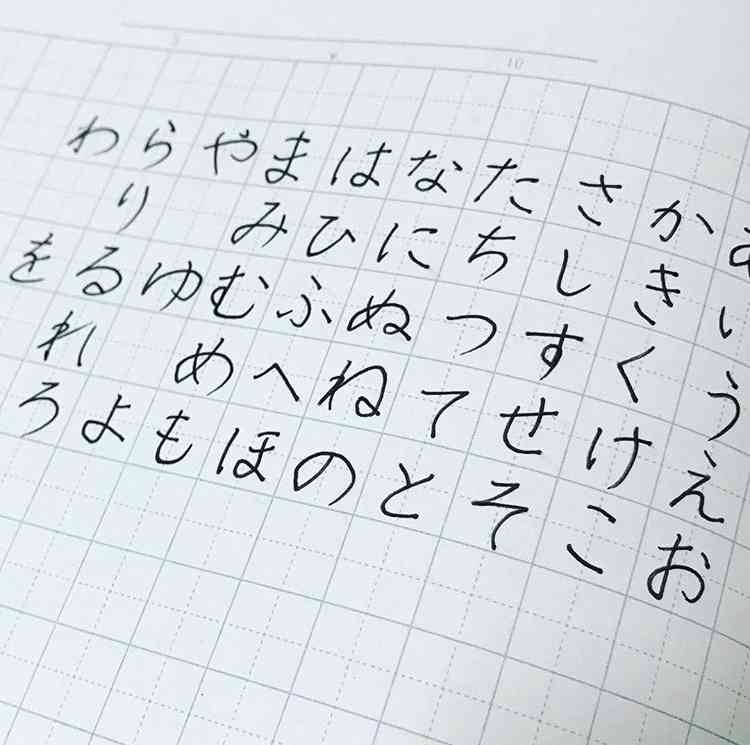 10
うえお
かきくけこ
さしすせそ
たちつてと
なにぬねの
はひふへほ
まみむめも
やゆよ
らりるれろ
わを